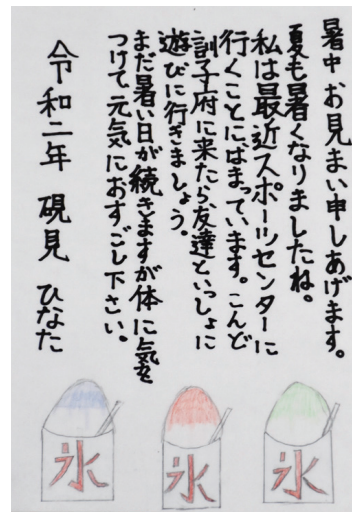 暑中お見まい申しあげます。
夏も暑くなりましたね。
私は最近スポーツセンターに
行くことにはまっています。こんど
訓子府に来たら友達といっしょに
遊びに行きましょう。
まだ暑い日が続きますが体に気を
つけて元気におすごし下さい。
令和二年 硯見 ひなた
氷
氷
氷